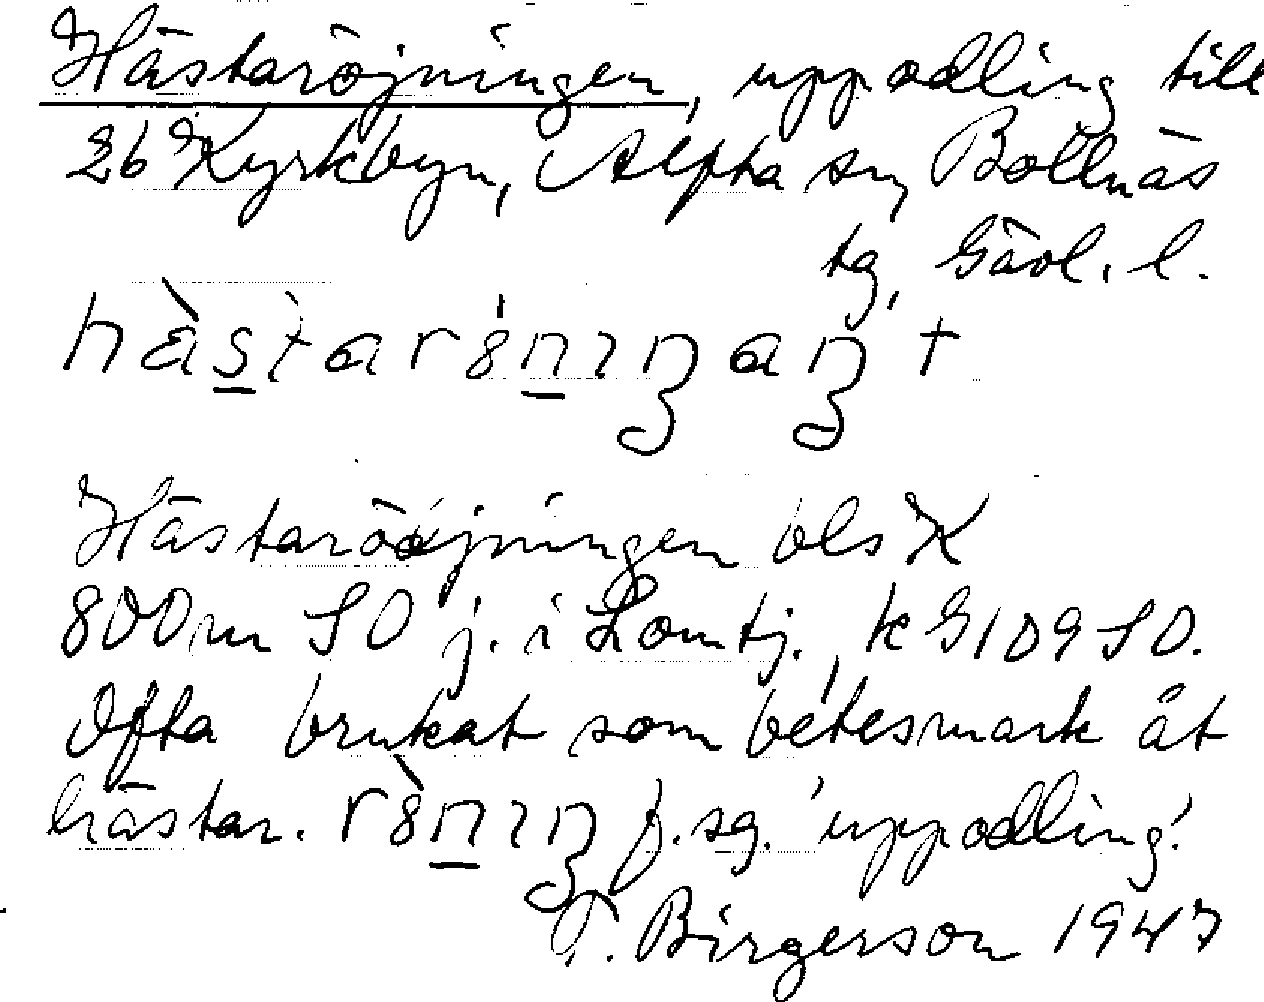 Hästaröjningen, uppodling till
26 Kyrkbyn, Alfta sn, Bollnäs
tg, Gävl. l.
Hästaröjningen bls X
800m SO j. i Lomtj., k G109 SO.
Ofta brukat som betesmark åt
hästar. f.sg. 'uppodling'.
T. Birgerson 1947